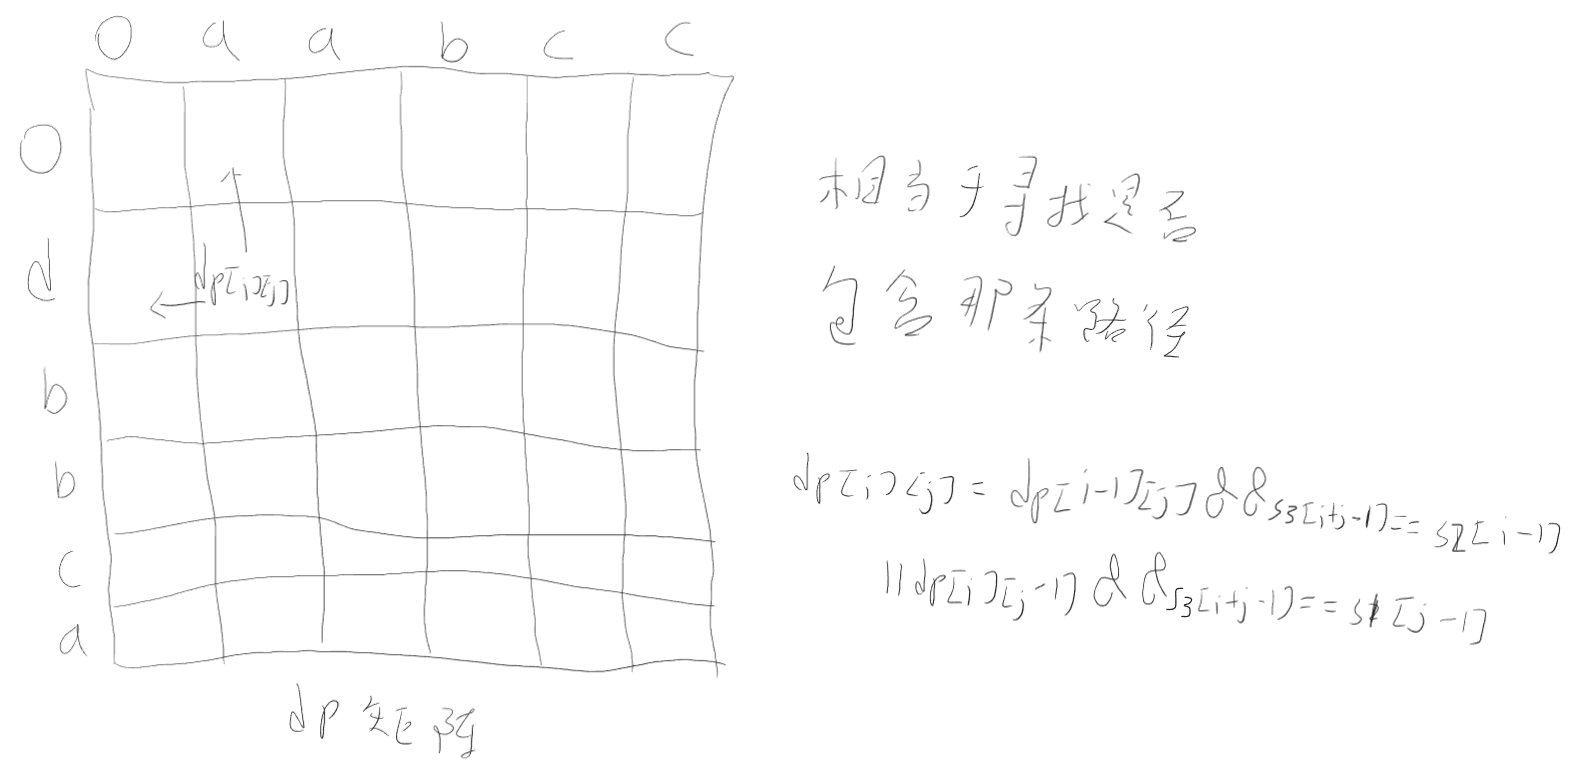 0 a a b c c
0
d
dp[i][j]
b
b
c
a
dp矩阵
相当于寻找是否
包含那条路径
dp[i][j] = dp[i-1][j] && s3[i+j-1] == s2[i-1]
|| dp[i][j-1] && s3[i+j-1] == s1[j-1]